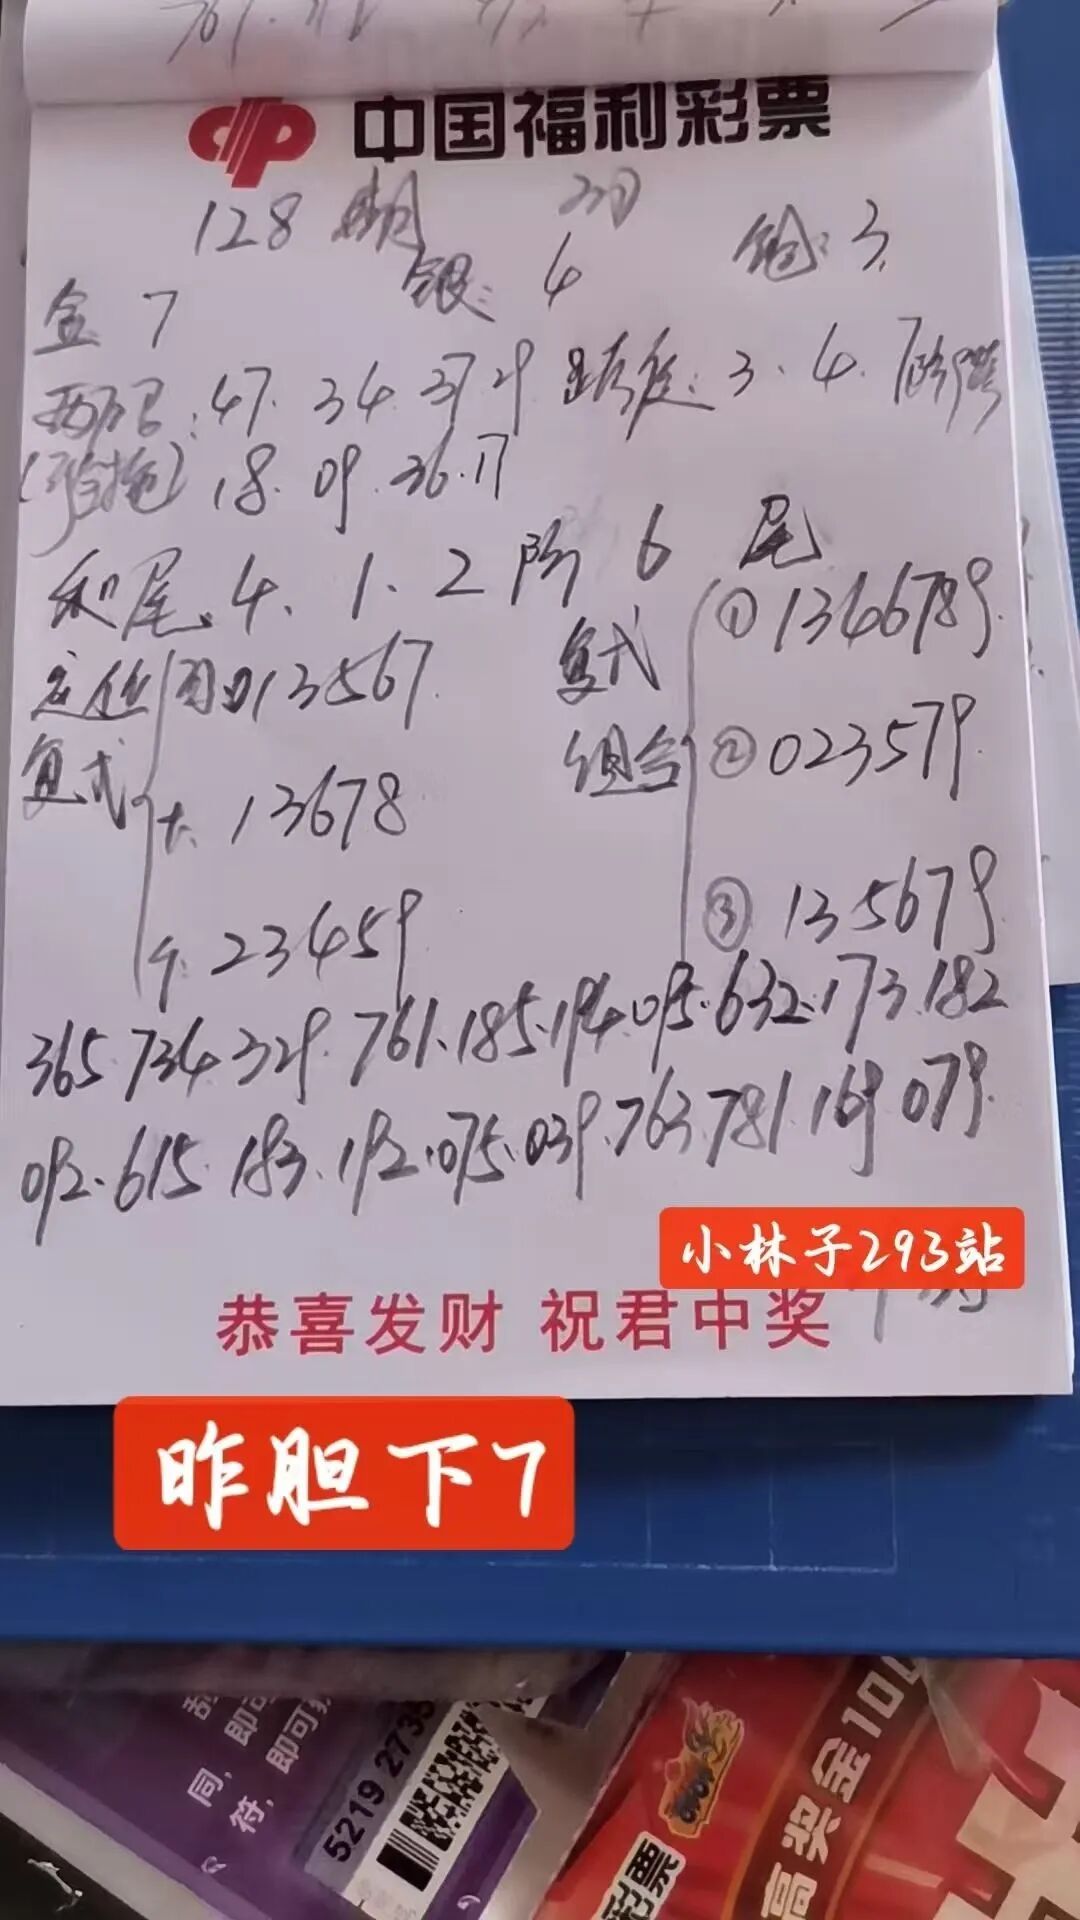 中国福利彩票
128期
金 7 银: 4 铜: 3
两码: 47. 34. 37. 29 跨度: 3. 4. 7
18. 09. 36. 17
和尾. 4. 1. 2 防 6 尾
定位 百 013567
复式 十. 13678
个. 23459
复式组合 ① 1346789
② 023579
③ 135679
365. 734. 329. 761. 185. 194. 095. 632. 173. 182
092. 615. 183. 192. 075. 039. 763. 781. 169 079
小林子293站
恭喜发财 祝君中奖
昨胆下7
即可
即可
同,
符,
5219 2735
彩票
高奖金10